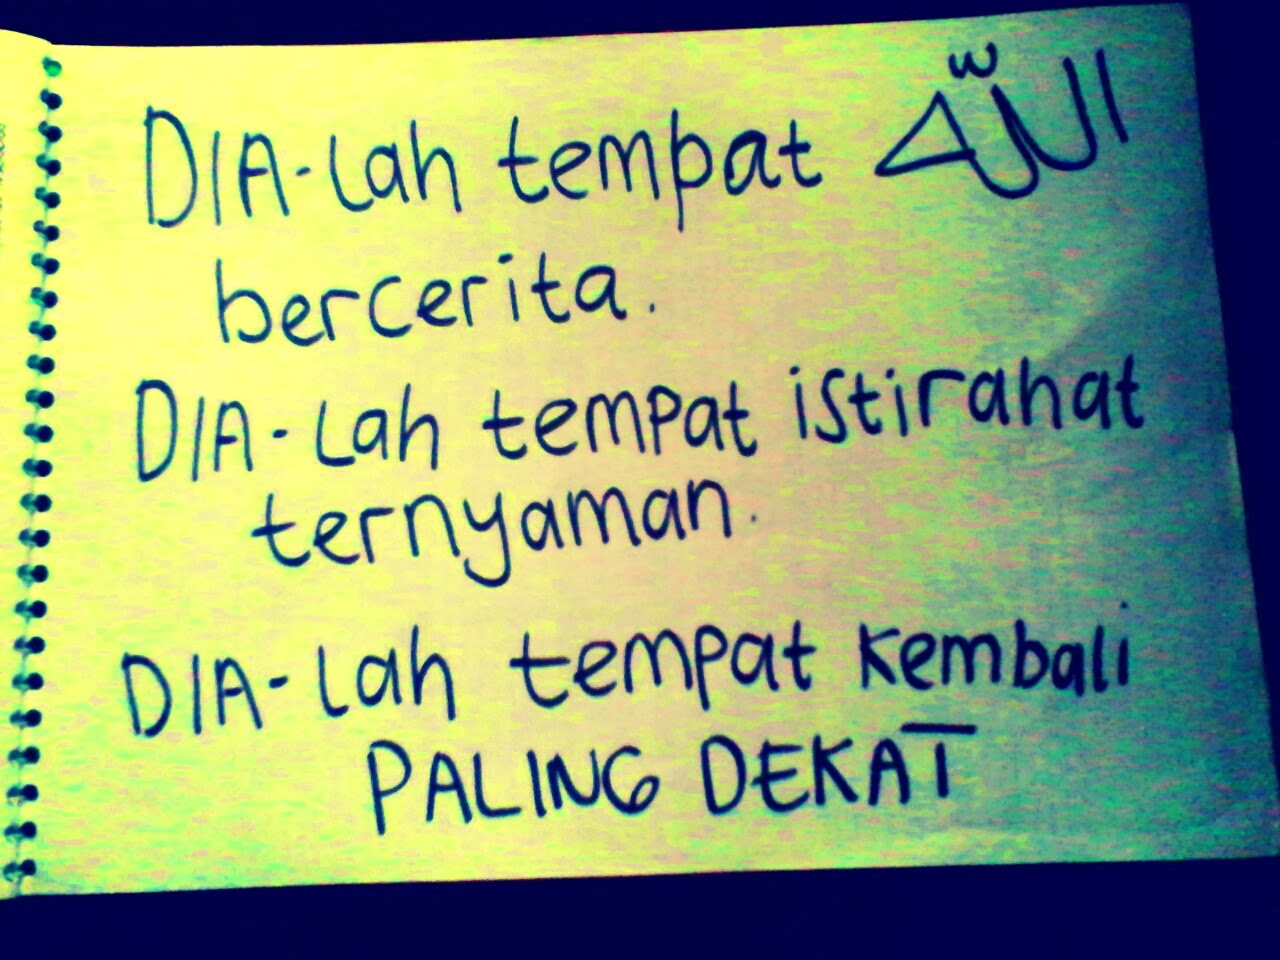 DIA-Lah tempat الله
bercerita.
DIA-Lah tempat istirahat
ternyaman.
DIA-Lah tempat kembali
PALING DEKAT